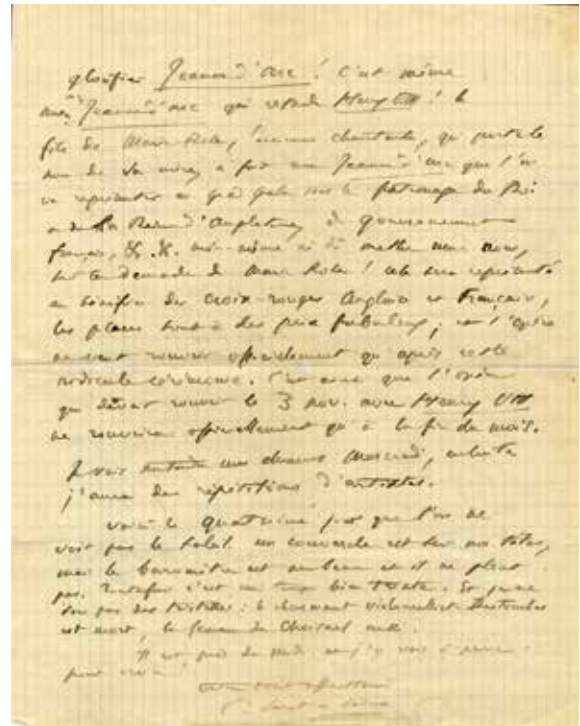 glorifier Jeanne d'Arc ! C'est même
Jeanne d'Arc qui retarde Henry VIII ! le
fils de Marie Roze, l'ancienne chanteuse, qui porte le
nom de sa mère, a fait une Jeanne d'Arc que l'on
va représenter en gd gala sous le patronage du Roi
et de la Reine d'Angleterre, du gouvernement
français, &. &. moi-même ai dû mettre mon nom,
sur la demande de Marie Roze ! cela sera représenté
au bénéfice des croix-rouges Anglaise et Française,
les places sont à des prix fabuleux ; et l'Opéra
ne veut rouvrir officiellement qu'après cette
ridicule cérémonie. C'est ainsi que l'Opéra
qui devait rouvrir le 3 nov. avec Henry VIII
ne rouvrira officiellement qu'à la fin du mois.
Je vais entendre mes chœurs mercredi, ensuite
j'aurai des répétitions d'artistes.
Voici le quatrième jour que l'on ne
voit pas le soleil. un couvercle est sur nos têtes,
mais le baromètre est au beau et il ne pleut
pas. c'est un temps bien triste. Et je ne
dis pas des tristesses : le charmant violoncelliste
est mort, la femme de aussi.
Il est près de midi et j'y vois à peine
pour écrire !
C. Saint-Saëns